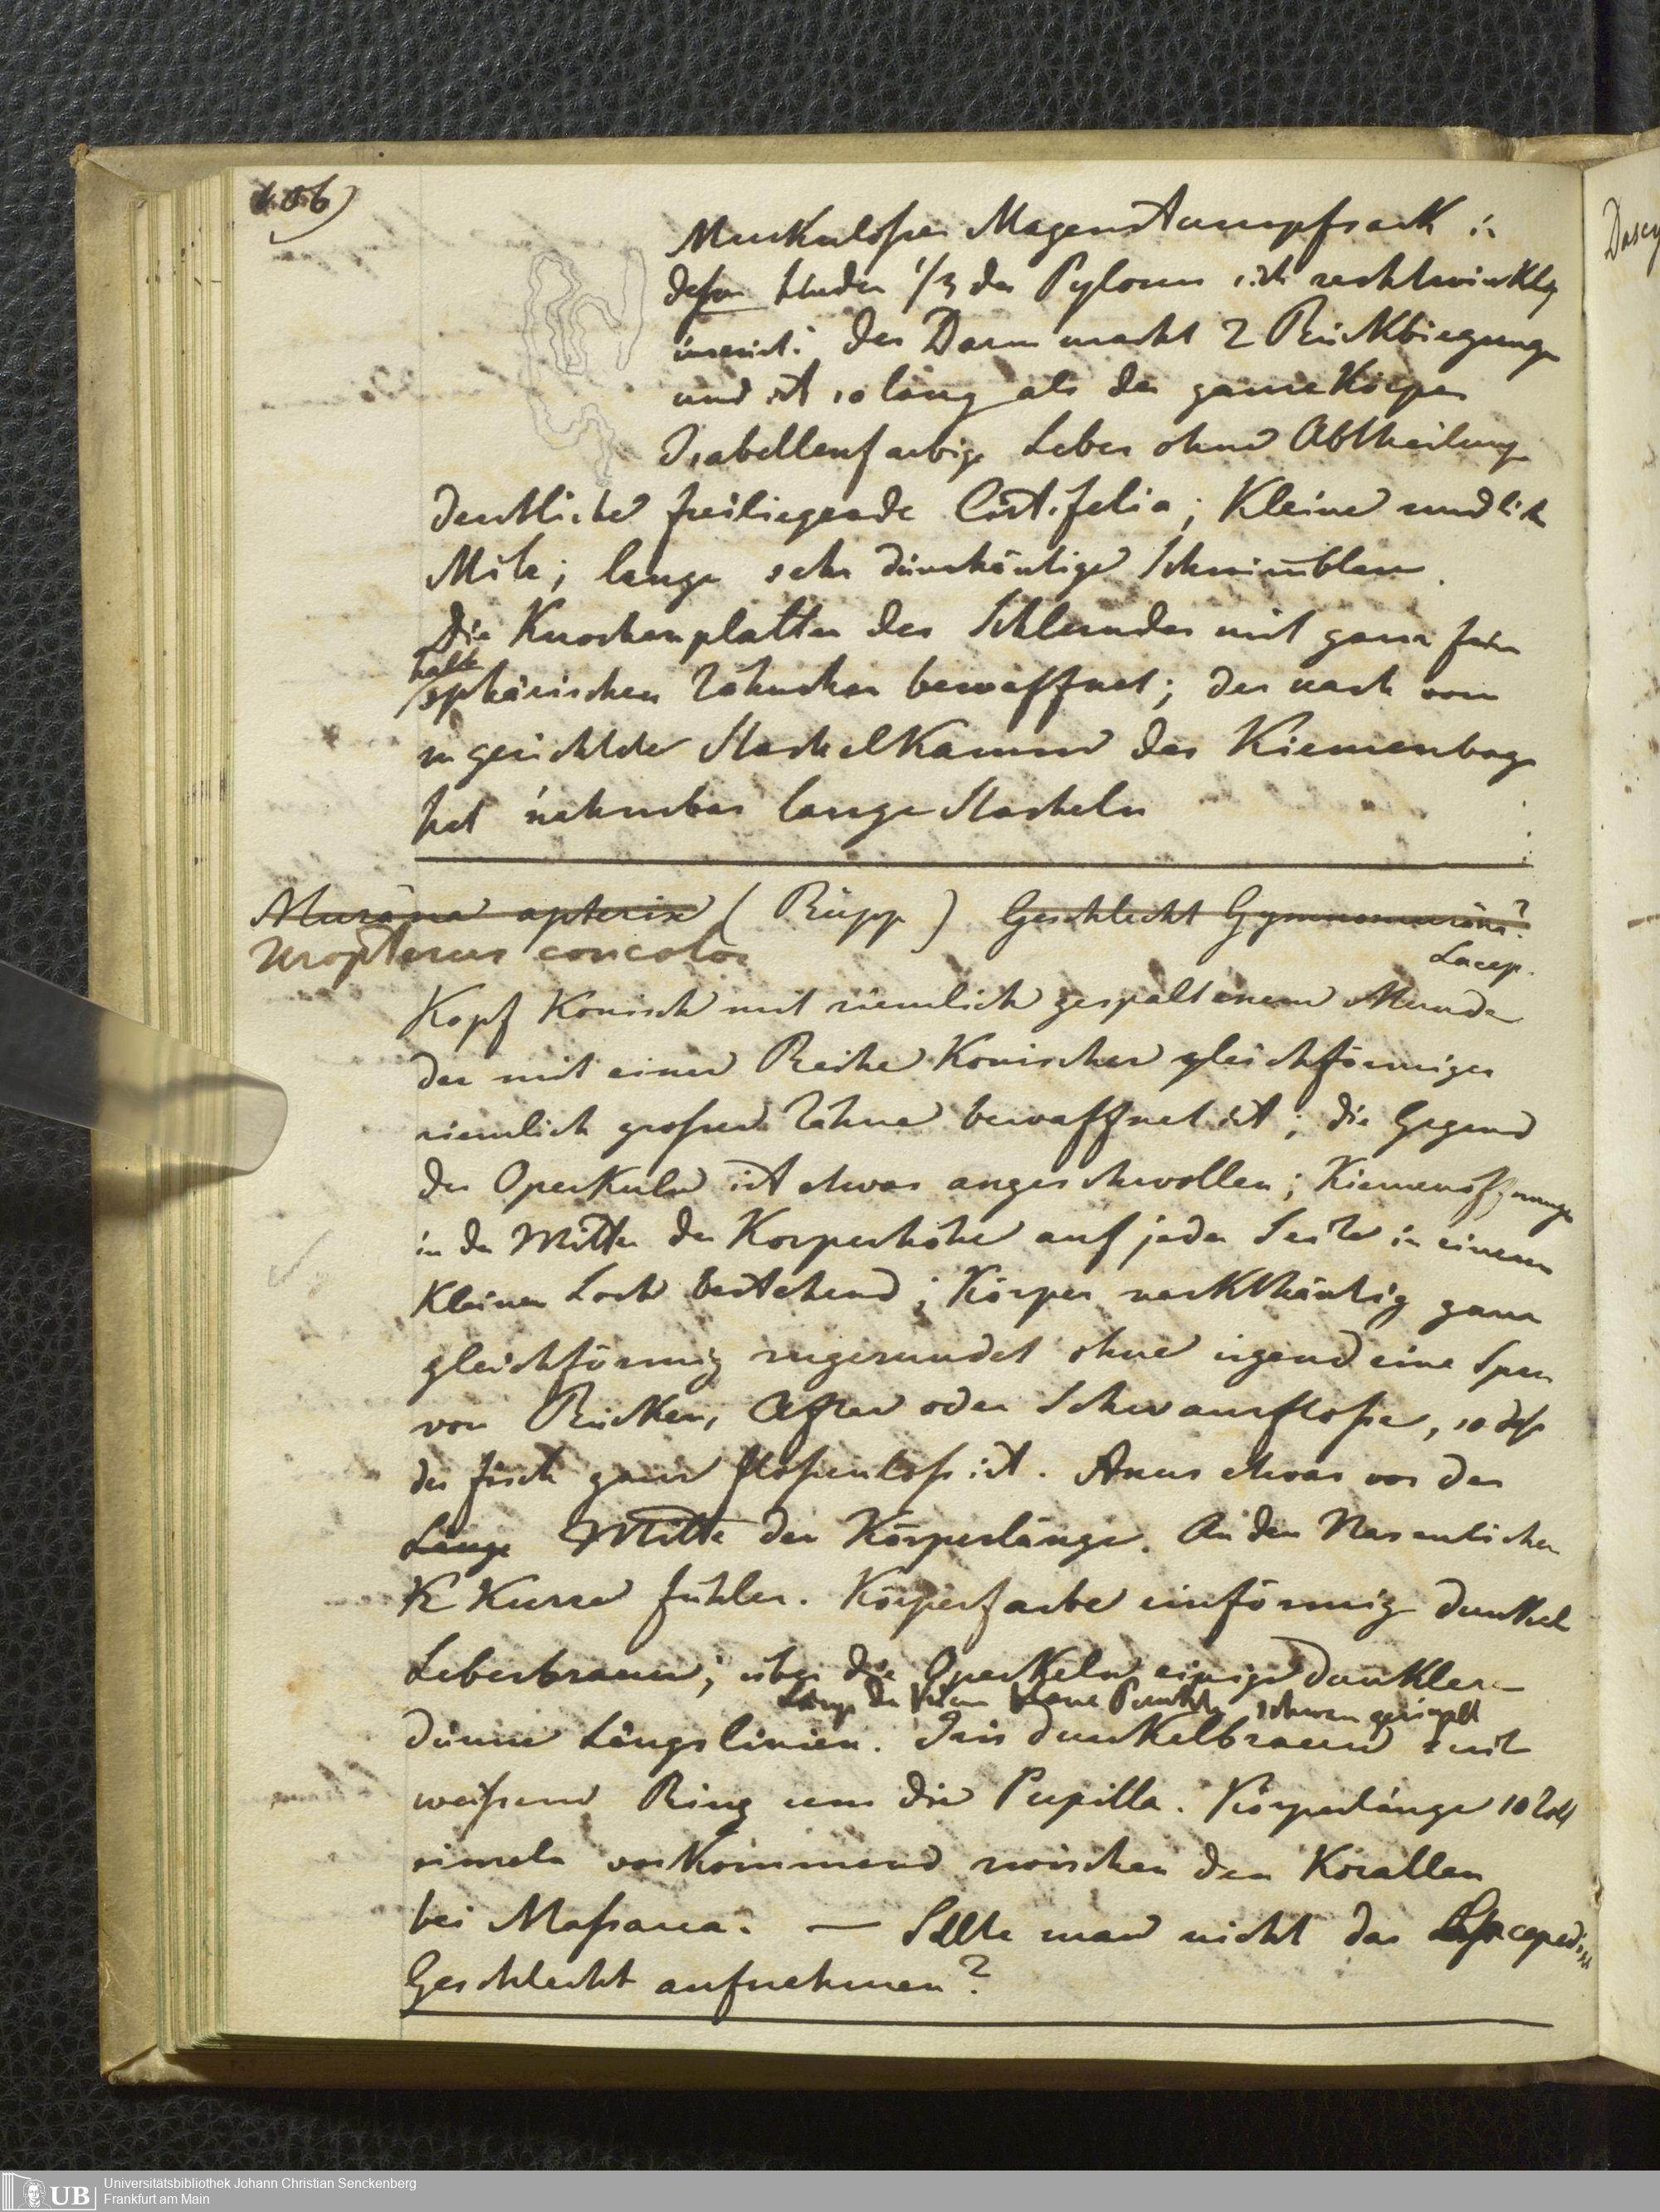 106)
Muskuloser Magenstumpfsack in
dessen Under 1/3 der Pylorus sich rechtwinklig
inserirt. Der Darm macht 2 Rückbiegunge
und ist so lang als der ganze Körper
Isabellenfarbige Leber ohne Abtheilung
deutliche freiliegende Cist. felia; Kleine rundlich
Milz; lange sehr dünnhäutige Schwimblase.
Die Knochenplatten des Schlundes mit ganz fein
halb
sphärischen Zähnchen bewaffnet; der nach vorn
zu gerichtete Stachelkamm des Kiemenboge
hat nehmbar lange Stacheln
Muräna apterix (Rüpp) Geschlecht Gymnomuräna?
Lacep.
Uropterus concolor
Kopf Konisch mit ziemlich gespaltenem Munde
der mit einer Reihe Konischer gleichförmiger
ziemlich grosser Zähne bewaffnet ist; die Gegend
der Operkuln ist etwas angeschwollen; Kiemenöffnunge
in der Mitte der Korperhöhe auf jeder Seite in einem
Kleinen Loch bestehend; Körper nackthäutig ganz
gleichförmig zugerundet ohne irgend eine Spur
von Rücken, After oder Schwanzflosse, so dass
der Fisch ganz flossenloss ist. Anus etwas vor der
Länge Mitte der Körperlänge. An den Nasenlöcher
K Kurze Fühler. Körperfarbe einförmig dunkel
Leberbraun; über die Operkeln einige dunklere
Längs der Kiem kleine Punkte schwarz geringelt
dünne Längslinien. Iris dunkelbraun mit
weissem Ring um die Pupilla. Körperlänge 10 Zoll
einzeln vorkommend zwischen den Korallen
bei Massaua. — Sollte man nicht das Lacepedisch
Geschlecht aufnehmen?
Dascy
UB Universitätsbibliothek Johann Christian Senckenberg
Frankfurt am Main